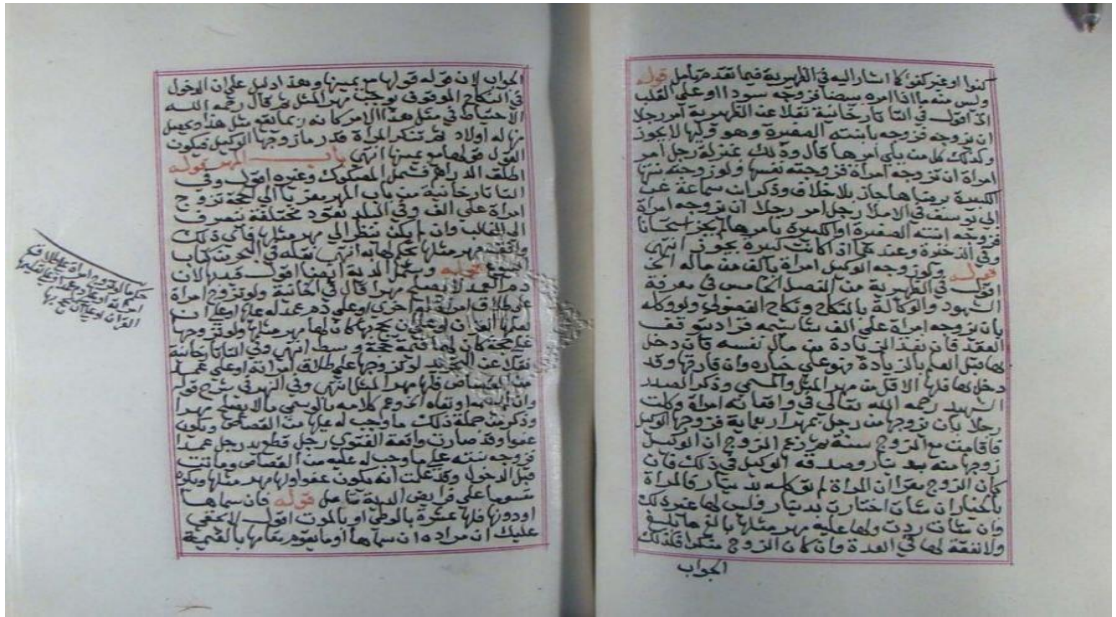 كفوا او غير كفؤ كما اشار اليه في الظهيرية فيما تقدم تأمل قوله
وليس منه ما اذا امره ببيضا فزوجه سودا او على القلب
الخ اقول في التاتارخانية نقلا عن الظهيرية امر رجلا
ان يزوجه فزوجه بابنته الصغيرة وهو قولها لا يجوز
وكذلك كل من يلي امرها قال وذلك بمنزلة رجل امر
امراة ان تزوجه امراة فزوجته نفسها ولو زوجته بنتها
الكبيرة برضاها جاز بلا خلاف وذكر ابن سماعة عن
ابي يوسف في الاملا رجل امر رجلا ان يزوجه امراة
فزوجه ابنته الصغيرة او الكبيرة بامرها لم يجز استحسانا
وفي الذخيرة وعند محمد اذا كانت كبيرة يجوز انتهى
قوله ولو زوجه الوكيل امراة بالف من ماله الخ
اقول في الظهيرية من الفصل الخامس في معرفة
الشهود والوكالة بالنكاح ونكاح الفضولي ولو وكله
بان يزوجه امراة على الف بتسمية فزاد يتوقف
العقد فان نفذ الزيادة من مال نفسه فان دخل
بها قبل العلم بالزيادة فهو على خياره وان فارقها وقد
دخل بها فلها الاقل من مهر المثل والمسمى وذكر الصدر
الشهيد رحمه الله تعالى في واقعاته امراة وكلت
رجلا بان يزوجها من رجل بمهر اربعماية فزوجها الوكيل
فاقامت مع الزوج سنة ثم زعم الزوج ان الوكيل
زوجها منه بدينار وصدقه الوكيل في ذلك فان
كان الزوج مقرا ان المراة لم توكله بدينار فالمراة
بالخيار ان شات اختارت بدينار وليس لها غير ذلك
وان شات ردت ولها عليه مهر مثلها بالغا ما بلغ
ولا نفقة لها في العدة وان كان الزوج منكرا فكذلك
الجواب
الجواب لان قوله قولها مع يمينها وهذا دليل على ان الدخول
في النكاح الموقوف يوجب مهر المثل ثم قال رحمه الله
الاحتياط في مثل هذا الامر كانه ربما يقع مثل هذا ويحصل
بينهم اولاد ثم تنكر المراة قدر ما زوجها الوكيل فيكون
القول قولها مع يمينها انتهى باب المهر قوله
اطلق الدراهم فشمل المسكوك وغيره اقول وفي
التاتارخانية من باب المهر معزيا الى الحجة تزوج
امراة على الف وفي البلد نقود مختلفة ينصرف
الى الغالب وان لم يكن ينظر الى مهر مثلها فاي ذلك
وافق مهر مثلها يحكم لها به انتهى نقله في البحر من كتاب
البيوع قوله ويشمل الدية ايضا اقول قيد لان
دم العمد لا يصلح مهرا قال في الخانية ولو تزوج امراة
على طلاق امراة اخرى او على دم عمد له عليها او على ان
يعلمها القران او على ان يحج بها كان لها مهر مثلها ولو تزوجها
على حجة كان لها قيمة حجة وسط انتهى وفي التاتارخانية
نقلا عن لو تزوجها على طلاق امراته او على عمد
من القصاص فلها مهر المثل انتهى وفي النهر في شرح قوله
وان لم يسمه او نفاه وعم كلامه ما لو سمى مالا يصلح مهرا
وذكر من جملة ذلك ما وجب له عليها من القصاص ويكون
عفوا وقد صارت واقعة الفتوى رجل قطع يد رجل عمدا
فزوجه بنته على ما وجب له عليه من القصاص وماتت
قبل الدخول وقد علمت انه يكون عفوا ولها مهر مثلها ويكون
مقسوما على فرايض الدية تامل قوله فان سماها
او دونها فلها عشرة بالوطئ او بالموت اقول لا يخفى
عليك ان مراده ان سماها او ما يقوم مقامها بالقيمة
حكم ما لو تزوج امراة على طلاق
امراته او على دم عمد او على تعليمها
القران او على ان يحج بها